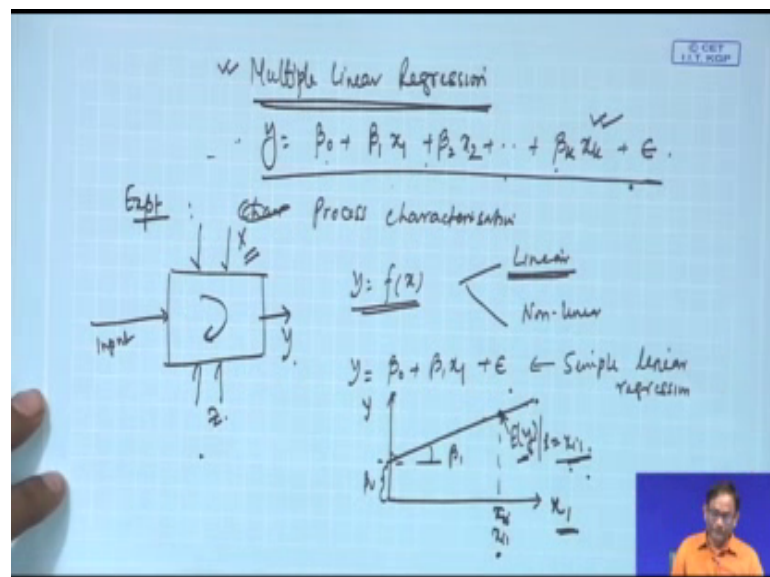 © CET
I.I.T. KGP
Multiple Linear Regression
y = β₀ + β₁ x₁ + β₂ x₂ + ·· + βₖ xₖ + ϵ.
Expt : Process characterisation
X
Input
y.
z.
y = f(x)
Linear
Non-linear
y = β₀ + β₁ x₁ + ϵ ← Simple linear regression
y
E(y)|
β₁
β₀
x₁
xᵢ₁